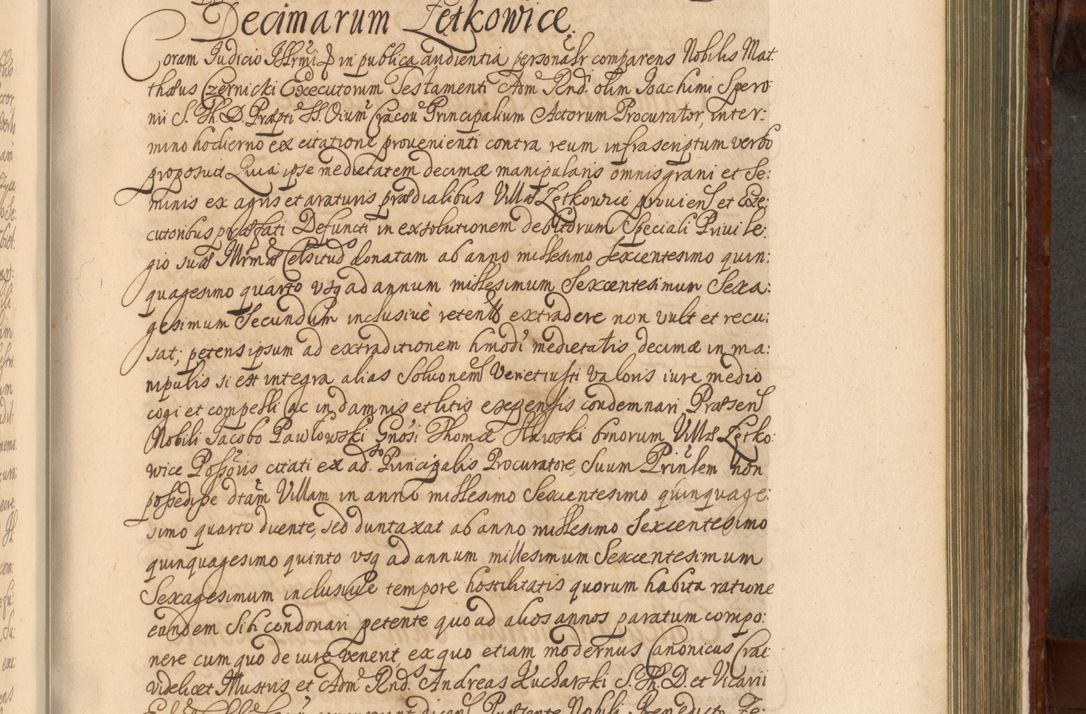 Decimarum Zętkowice
Coram Judicio Illrmi D in publica audientia personalr comparens Nobilis Mat:
thæus Czernicki Executorum Testamenti Adm Rnd. olim Joachimi Spero
nii S. Th. D. Præpti Vium Cracou Principalium Actorum Procurator, inter:
mino hodierno ex citatione provenienti contra reum infrascriptum verbo
proposuit Quia ipse medietatem decimæ manipularis omnis grani et Se:
minis ex agris et araturis prædialibus Villæ Zętkowice provien et Exe:
cutoribus præfati Defuncti in exsolutionem debitorum Speciali Privile:
gio suæ Illrmæ Celsitud donatam ab anno millesimo Sexcentesimo quin:
quagesimo quarto vsq ad annum millesimum Sexcentesimum Sexa:
gesimum Secundum inclusivè retent extradere non vult et recu:
sat; petens ipsum ad extraditionem hmodi medietatis decimæ in ma:
nipulis si est integra alias Soluonem Veneti justi valoris iure medio
cogi et compelli ac in damnis et litis expensis condemnari Præsen
Nobili Jacobo Pawłowski Gnosi Thomæ Iławski bnorum Villæ Zętko:
wice Possoris citati ex ad Principalis Procuratore Suum Prinlem non
possedisse dtam Villam in anno millesimo Sexcentesimo quinquage:
simo quarto dicente, sed duntaxat ab anno millesimo Sexcentesimo
quinquagesimo quinto vsq ad annum millesimum Sexcentesimum
Sexagesimum inclusive tempore hostilitatis quorum habita ratione
eandem Sibi condonari petente quoad alios annos paratum compo:
nere cum quo de iure venent, ex quo etiam modernus Canonicus Crac
videlicet Illustris et Adm Rnd. Andreas Kucharski S. Th. D. et Vicarii